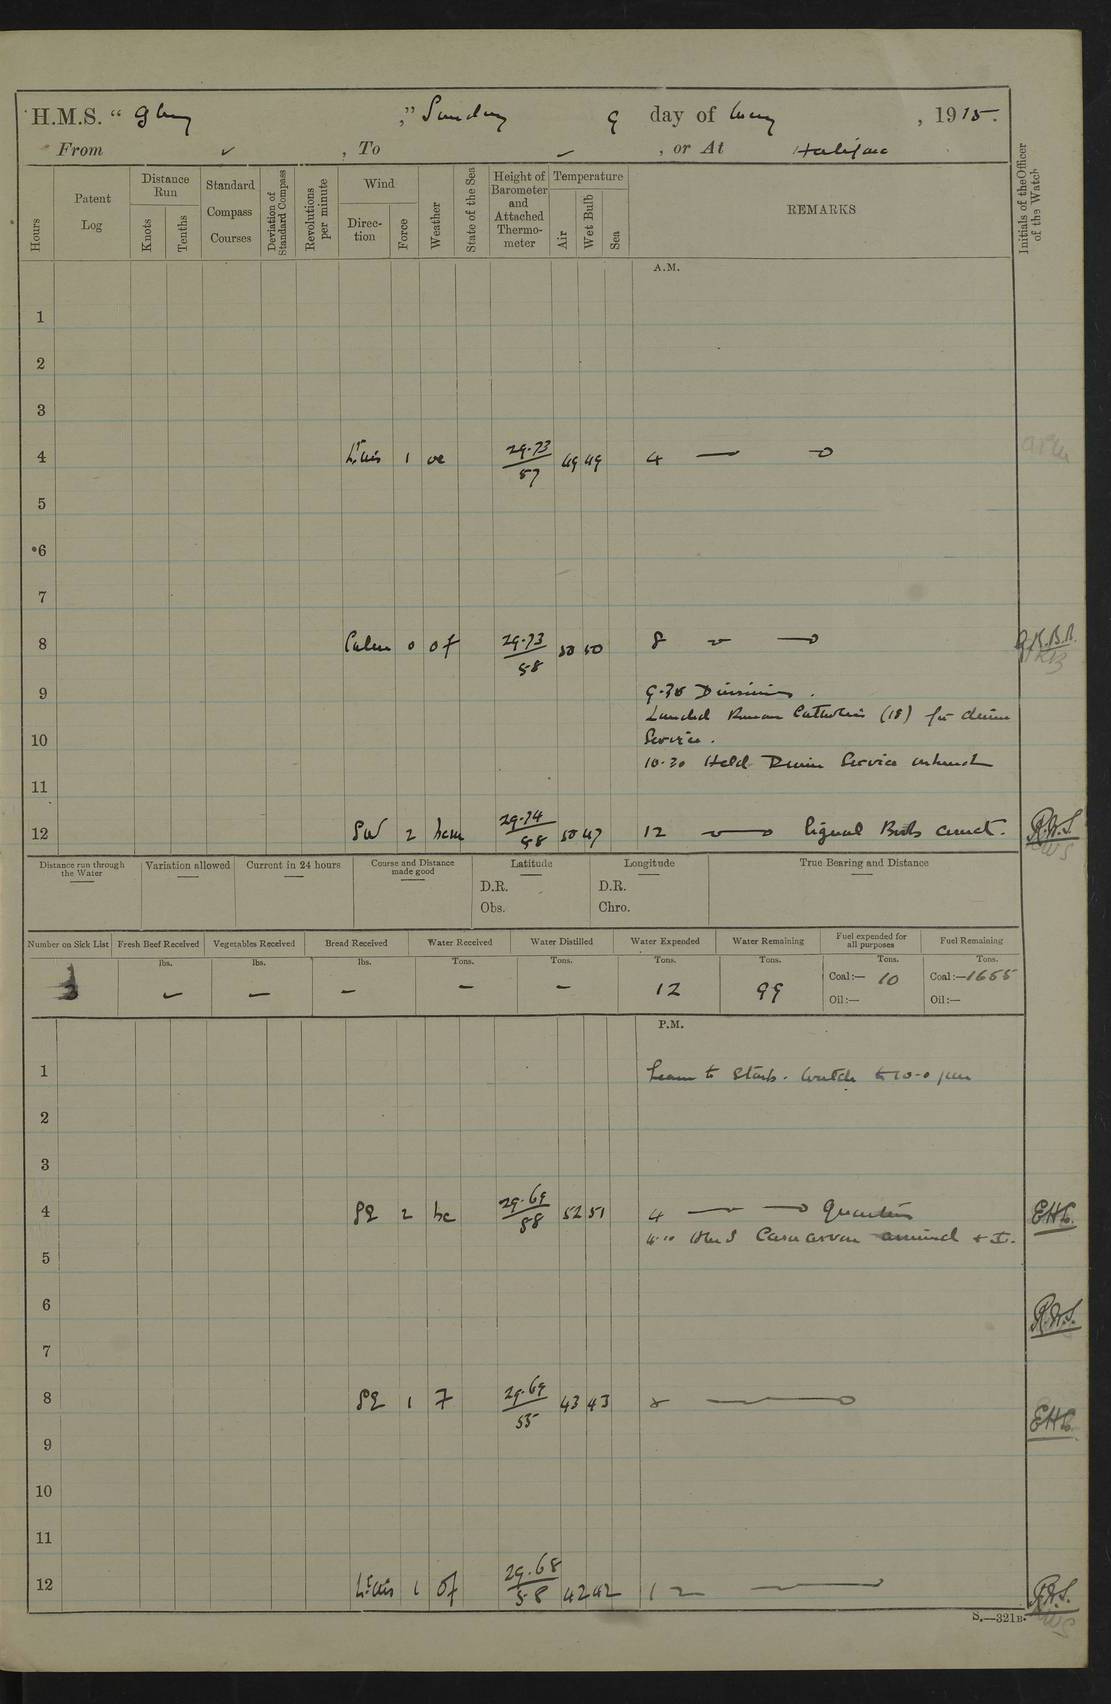 H.M.S. “ Glory ,” Sunday 9 day of May , 1915.
From ✓ , To ✓ , or At Halifax
Hours
Patent Log
Distance Run
Knots
Tenths
Standard Compass Courses
Deviation of Standard Compass
Revolutions per minute
Wind
Direction
Force
Weather
State of the Sea
Height of Barometer and Attached Thermometer
Temperature
Air
Wet Bulb
Sea
REMARKS
Initials of the Officer of the Watch
A.M.
1
2
3
4 Lt airs 1 oc 29.73/57 49 49 4 —
5
6
7
8 Calm 0 of 29.73/58 50 50 8 — G.K.B.B.
9 9.30 Divisions.
Landed Roman Catholics (18) for divine
10 Service.
10.30 Held Divine Service onboard
11
12 SW 2 bcm 29.74/58 50 47 12 — Signal Books correct. R.W.S.
Distance run through the Water
Variation allowed
Current in 24 hours
Course and Distance made good
Latitude
D.R.
Obs.
Longitude
D.R.
Chro.
True Bearing and Distance
Number on Sick List
Fresh Beef Received
Vegetables Received
Bread Received
Water Received
Water Distilled
Water Expended
Water Remaining
Fuel expended for all purposes
Fuel Remaining
lbs. lbs. lbs. Tons. Tons. Tons. Tons. Tons. Tons.
3 — — — — — 12 99 Coal:— 10 Coal:—1655
Oil:— Oil:—
P.M.
1 Leave to Starb. Watch to 10-0 pm
2
3
4 SE 2 bc 29.69/58 52 51 4 — Quarters E.H.L.
4.10 HMS Carnarvon arrived
5
6 R.W.S.
7
8 SE 1 F 29.69/55 43 43 8 — E.H.L.
9
10
11
12 Lt airs 1 Of 29.68/58 42 42 12 — R.W.S.
S.—321B.